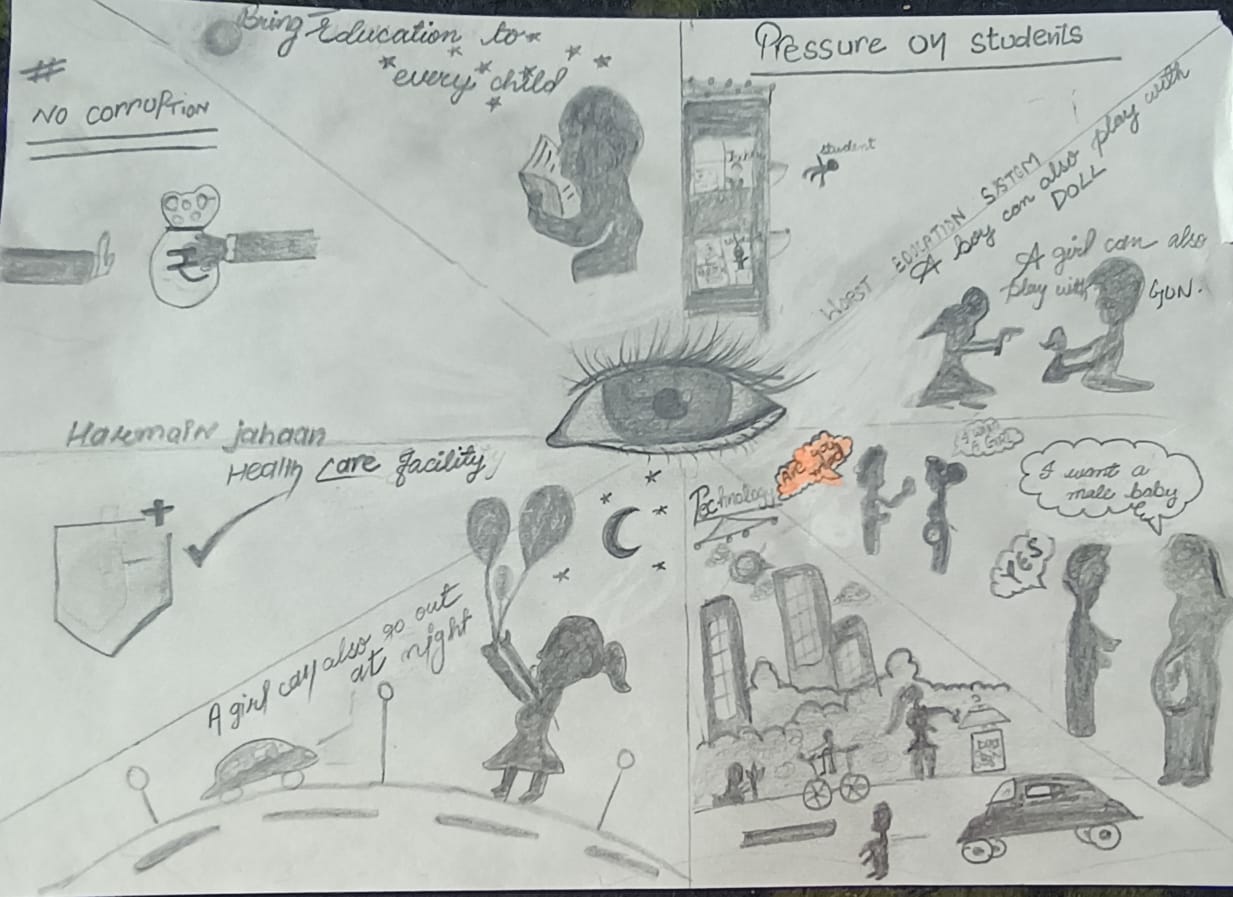 Bring Education to
every child
#
NO CORRUPTION
Pressure on students
student
WORST EDUCATION SISTEM
A boy can also play with
DOLL
A girl can also
play with GUN.
Haremain jahaan
Health care facility
A girl can also go out
at night
Technology
Are you
I want a
male baby
YES